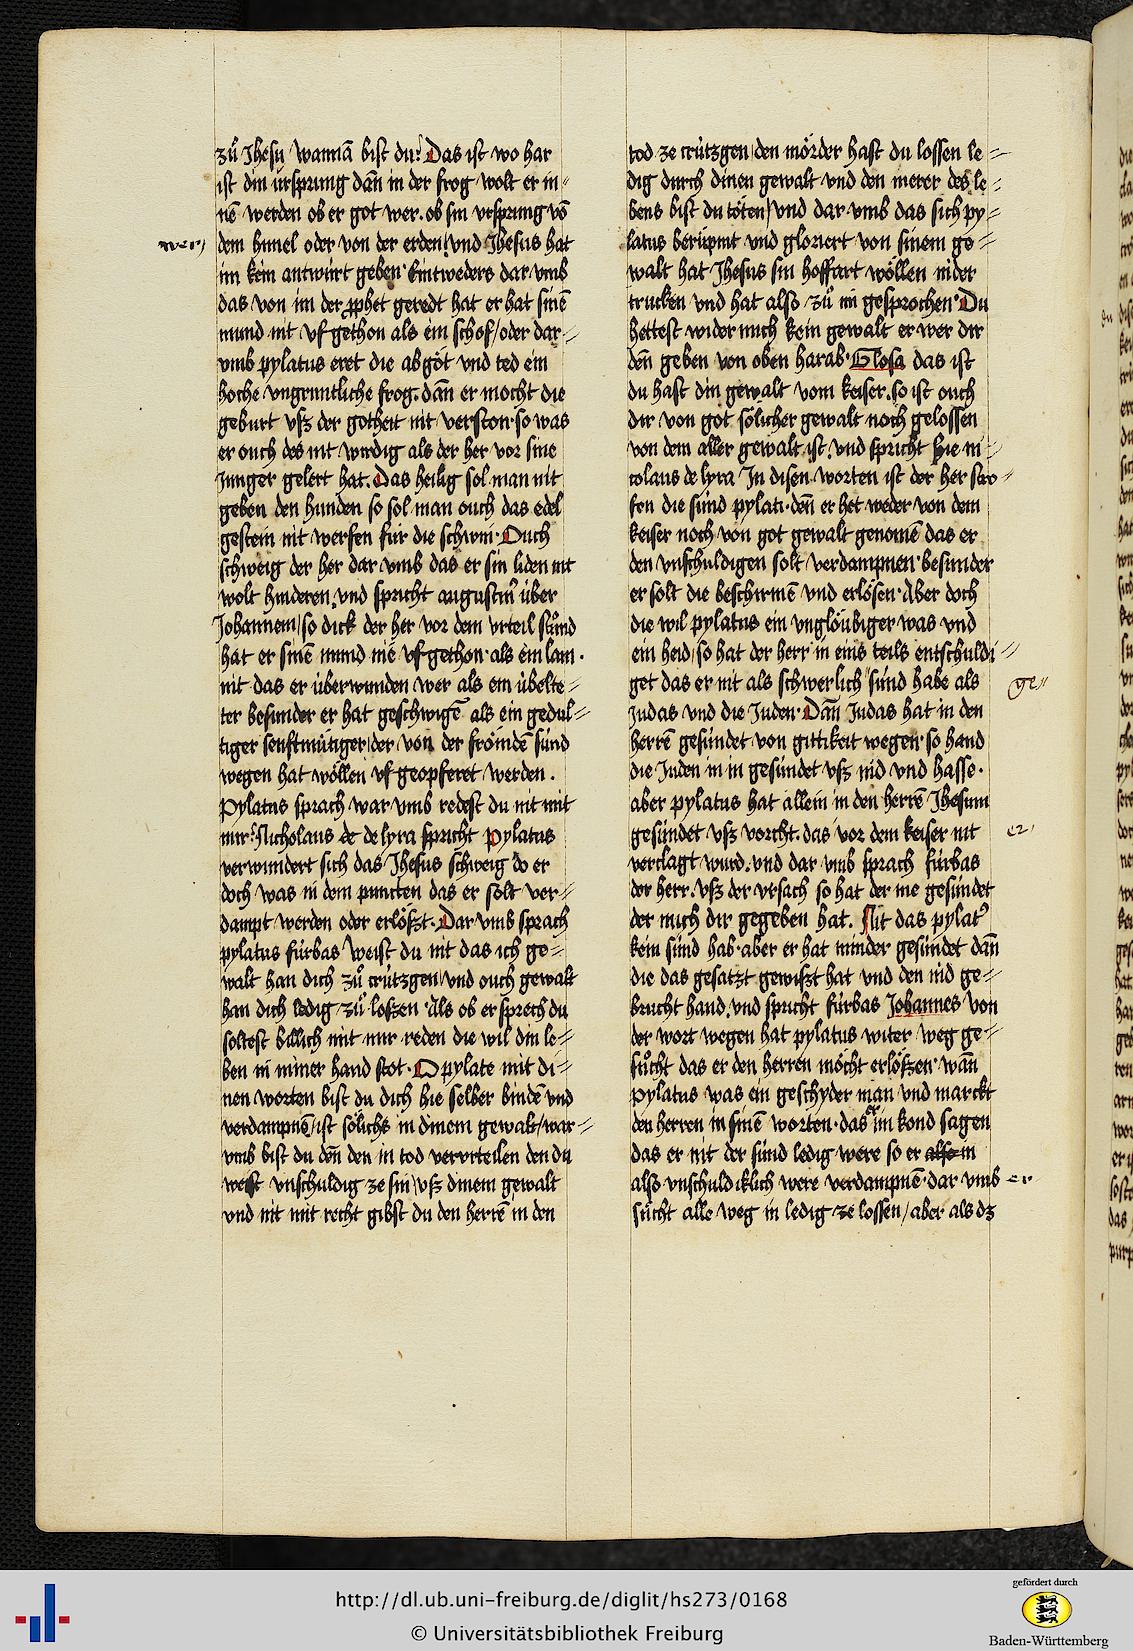 zů Jhesu wannā bist du? Das ist wo har
ist din ursprung dañ in der frog wolt er in⸗
nē werden ob er got wer. ob sin ursprung vō
wer/
dem himel oder von der erden/ und Jhesus hat
im kein antwürt geben· Eintweders dar vmb
das von im der ꝓphet geredt hat er hat sinē
mund nit vf gethon als ein schof/ oder dar⸗
vmb pylatus eret die abgöt vnd ted ein
hoche vngruntliche frog. dañ er mocht die
geburt vß der gotheit nit verston· so was
er ouch des nit wirdig als der her vor sine
Junger gelert hat. Das heilig sol man nit
geben den hunden so sol man ouch das edel
gestein nit werfen für die schwin· Ouch
schweig der her dar vmb das er sin liden nit
wolt hinderen. vnd spricht augustinꝰ über
Johannem/ so dick der her vor dem vrteil stůnd
hat er sinē mund nie vf gethon· als ein lam·
nit das er überwunden wer als ein übelte⸗
ter besunder er hat geschwigē als ein gedul⸗
tiger senftmütiger/ der von der frömdē sünd
wegen hat wöllen vf geopferet werden.
Pylatus sprach war vmb redest du nit mit
mir? Nicholaus de de lyra spricht Pylatus
verwundert sich das Jhesus schweig do er
doch was in dem puncten das er solt ver⸗
dampt werden oder erlößt· Dar vmb sprach
pylatus fürbas weist du nit das ich ge⸗
walt han dich zů crützgen/ vnd ouch gewalt
han dich ledig zů loßen· Als ob er sprech du
soltest billich mit mir reden die wil din le⸗
ben in miner hand stot· O pylate mit di⸗
nen worten bist du dich hie selber bindē vnd
verdampnē/ ist sölichs in dinem gewalt/ war⸗
vmb bist du deñ den in tod vervrteilen den du
weist vnschuldig ze sin/ vß dinem gewalt
vnd nit mit recht gibst du den herrē in den
tod ze crützgen/ den mörder hast du lossen le⸗
dig durch dinen gewalt vnd den merer des le⸗
bens bist du töten/ vnd dar vmb das sich py⸗
latus berüpmt vnd gloriert von sinem ge⸗
walt hat Jhesus sin hoffart wöllen nider
trucken vnd hat also zů im gesprochen· Du
hettest wider mich kein gewalt er wer dir
deñ geben von oben harab· Glosa das ist
du hast din gewalt vom keiser. so ist ouch
dir von got sölicher gewalt noch gelossen
von dem aller gewalt ist. vnd spricht hie ni⸗
colaus de lyra In disen worten ist der her stro⸗
fen die sünd pylati· deñ er het weder von dem
keiser noch von got gewalt genomē das er
den vnschuldigen solt verdampnen· besunder
er solt die beschirmē vnd erlösen· Aber doch
die wil pylatus ein vnglöubiger was vnd
ein heid/ so hat der herr in eins teils entschuldi⸗
ge//
get das er nit als schwerlich sünd habe als
Judas vnd die Juden· Dañ Judas hat in den
herrē gesündet von gittikeit wegen· so hand
die Juden in in gesündet vß nid vnd hasse·
aber pylatus hat allein in den herrē Jhesum
er/
gesündet vß vorcht. das vor dem keiser nit
verclagt wurd. vnd dar vmb sprach fürbas
der herr. vß der vrsach so hat der me gesündet
der mich dir gegeben hat. Nit das pylatꝰ
kein sünd hab· aber er hat minder gesündet dañ
die das gesatzt gewißt hat vnd den nid ge⸗
brucht hand. vnd spricht fürbas Johannes von
der wort wegen hat pylatus witer weg ge⸗
sůcht das er den herren möcht erlößen· wañ
Pylatus was ein geschyder man vnd marckt
den herren in sinē worten· das er im kond sagen
das er nit der sünd ledig were so er also in
er/
also vnschuldiklich were verdampnē· dar vmb
sücht alle weg in ledig ze lossen/ aber als dz
http://dl.ub.uni-freiburg.de/diglit/hs273/0168
© Universitätsbibliothek Freiburg
gefördert durch
Baden-Württemberg